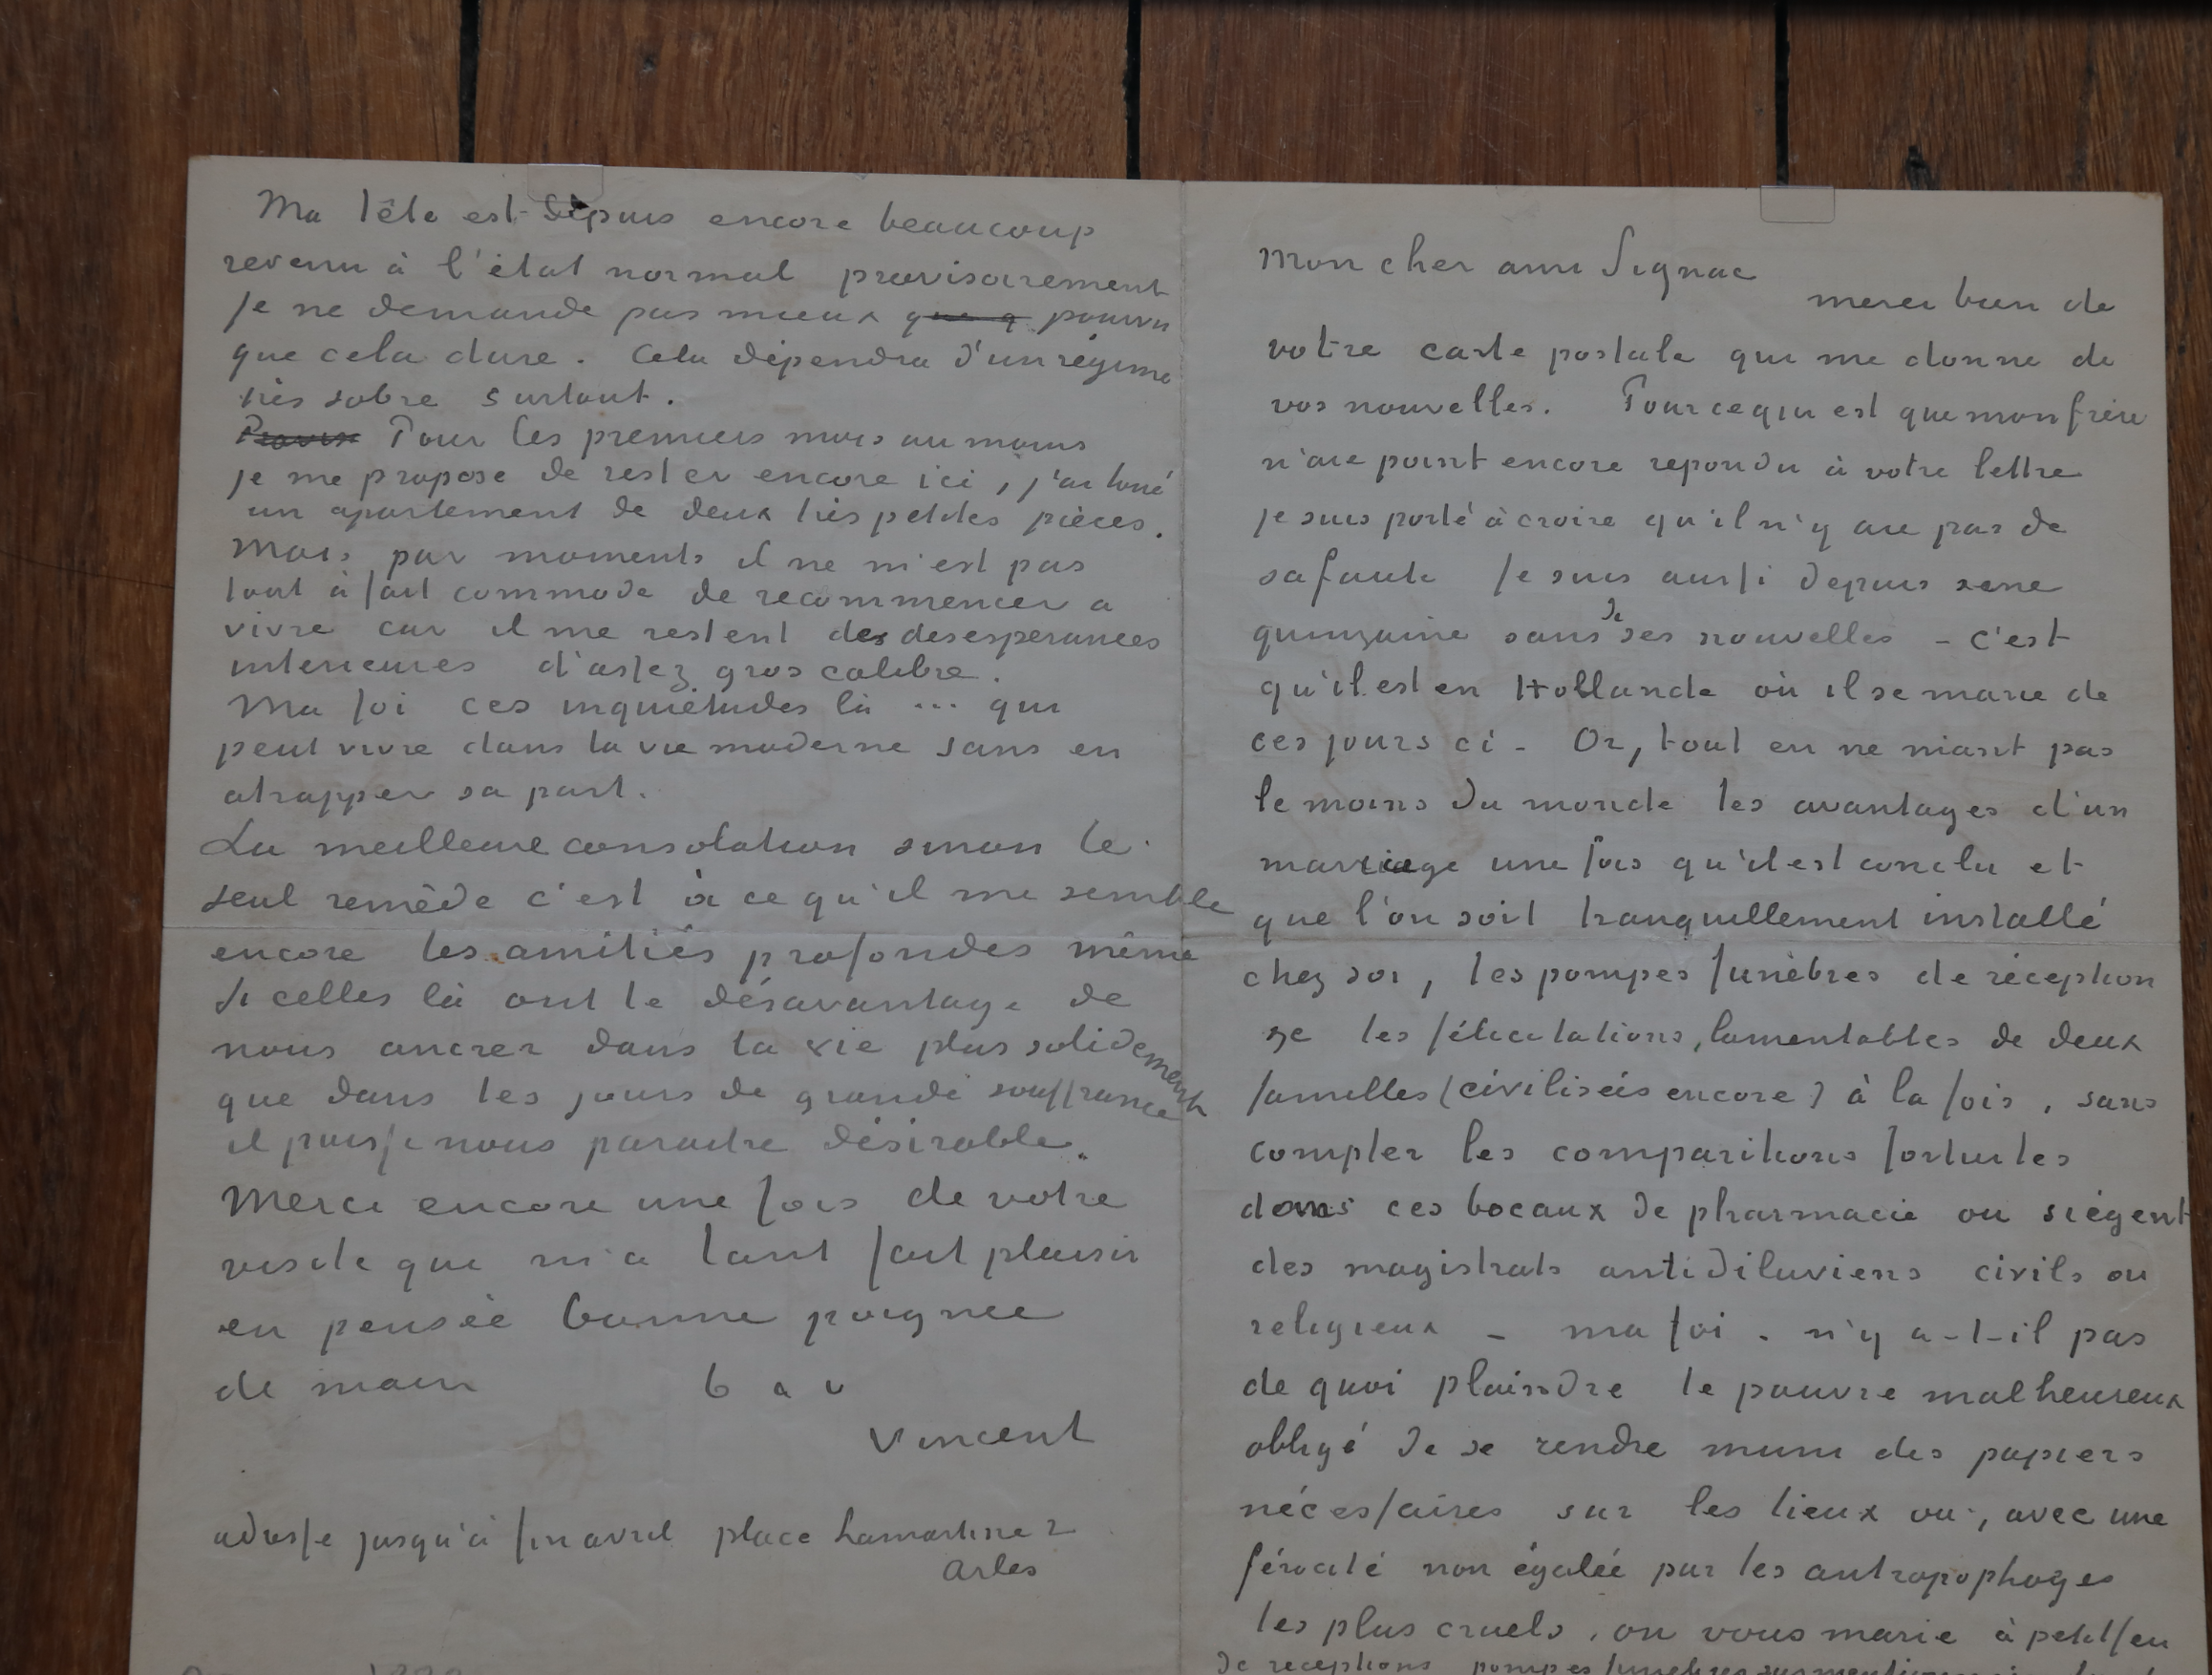 Mon cher ami Signac
merci bien de
votre carte postale qui me donne de
vos nouvelles. Pour ce qui est que mon frère
n'aie point encore repondu à votre lettre
je suis porté à croire qu'il n'y aie pas de
sa faute Je suis aussi depuis une
quinzaine sans de ses nouvelles – c'est
qu'il est en Hollande où il se marie de
ces jours ci – Or, tout en ne niant pas
le moins du monde les avantages d'un
mariage une fois qu'il est conclu et
que l'on soit tranquillement installé
chez soi, les pompes funèbres de réception
&c les félicitations lamentables de deux
familles (civilisées encore) à la fois, sans
compter les comparitions fortuites
dans ces bocaux de pharmacie ou siègent
des magistrats antidiluviens civils ou
religieux – ma foi – n'y a-t-il pas
de quoi plaindre le pauvre malheureux
obligé de se rendre muni des papiers
nécessaires sur les lieux où, avec une
férocité non égalée par les antropophages
les plus cruels, on vous marie à petit feu
de receptions pompes funebres
Ma tête est depuis encore beaucoup
revenu à l'état normal provisoirement
je ne demande pas mieux que q pourvu
que cela dure. Cela dépendra d'un régime
très sobre surtout.
Pour les premiers mois au moins
je me propose de rester encore ici, j'ai loué
un apartement de deux très petites pièces.
Mais par moments il ne m'est pas
tout à fait commode de recommencer a
vivre car il me restent des desesperances
interieures d'assez gros calibre.
Ma foi ces inquiétudes là ... qui
peut vivre dans la vie moderne sans en
atrapper sa part.
La meilleure consolation sinon le
seul remède c'est à ce qu'il me semble
encore les amitiés profondes même
si celles là ont le désavantage de
nous ancrer dans la vie plus solidement
que dans les jours de grande souffrance
il puisse nous paraitre désirable.
Merci encore une fois de votre
visite que m'a tant fait plaisir
en pensée bonne poignee
de main b a v
Vincent
adresse jusqu'à fin avril place Lamartine 2
Arles